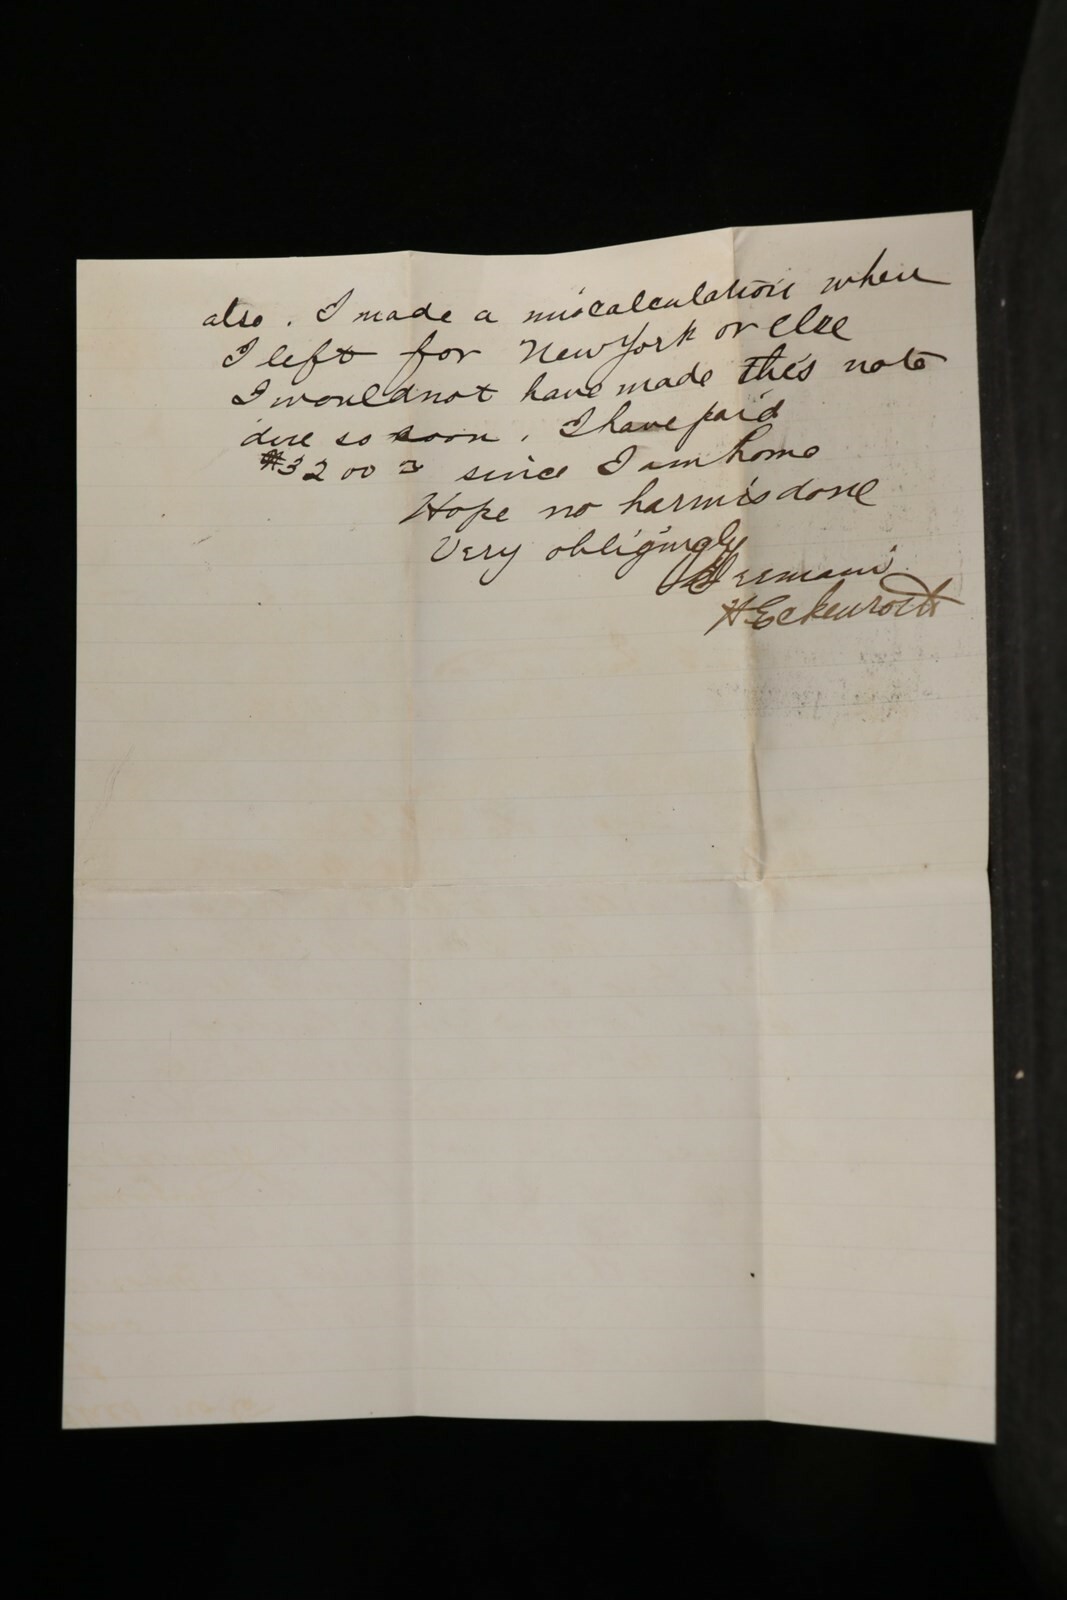 also. I made a miscalculation when
I left for New York or else
I would not have made this note
due so soon. I have paid
$3200 since I am home
Hope no harm is done
Very obligingly
Hermann
H Eckenroth